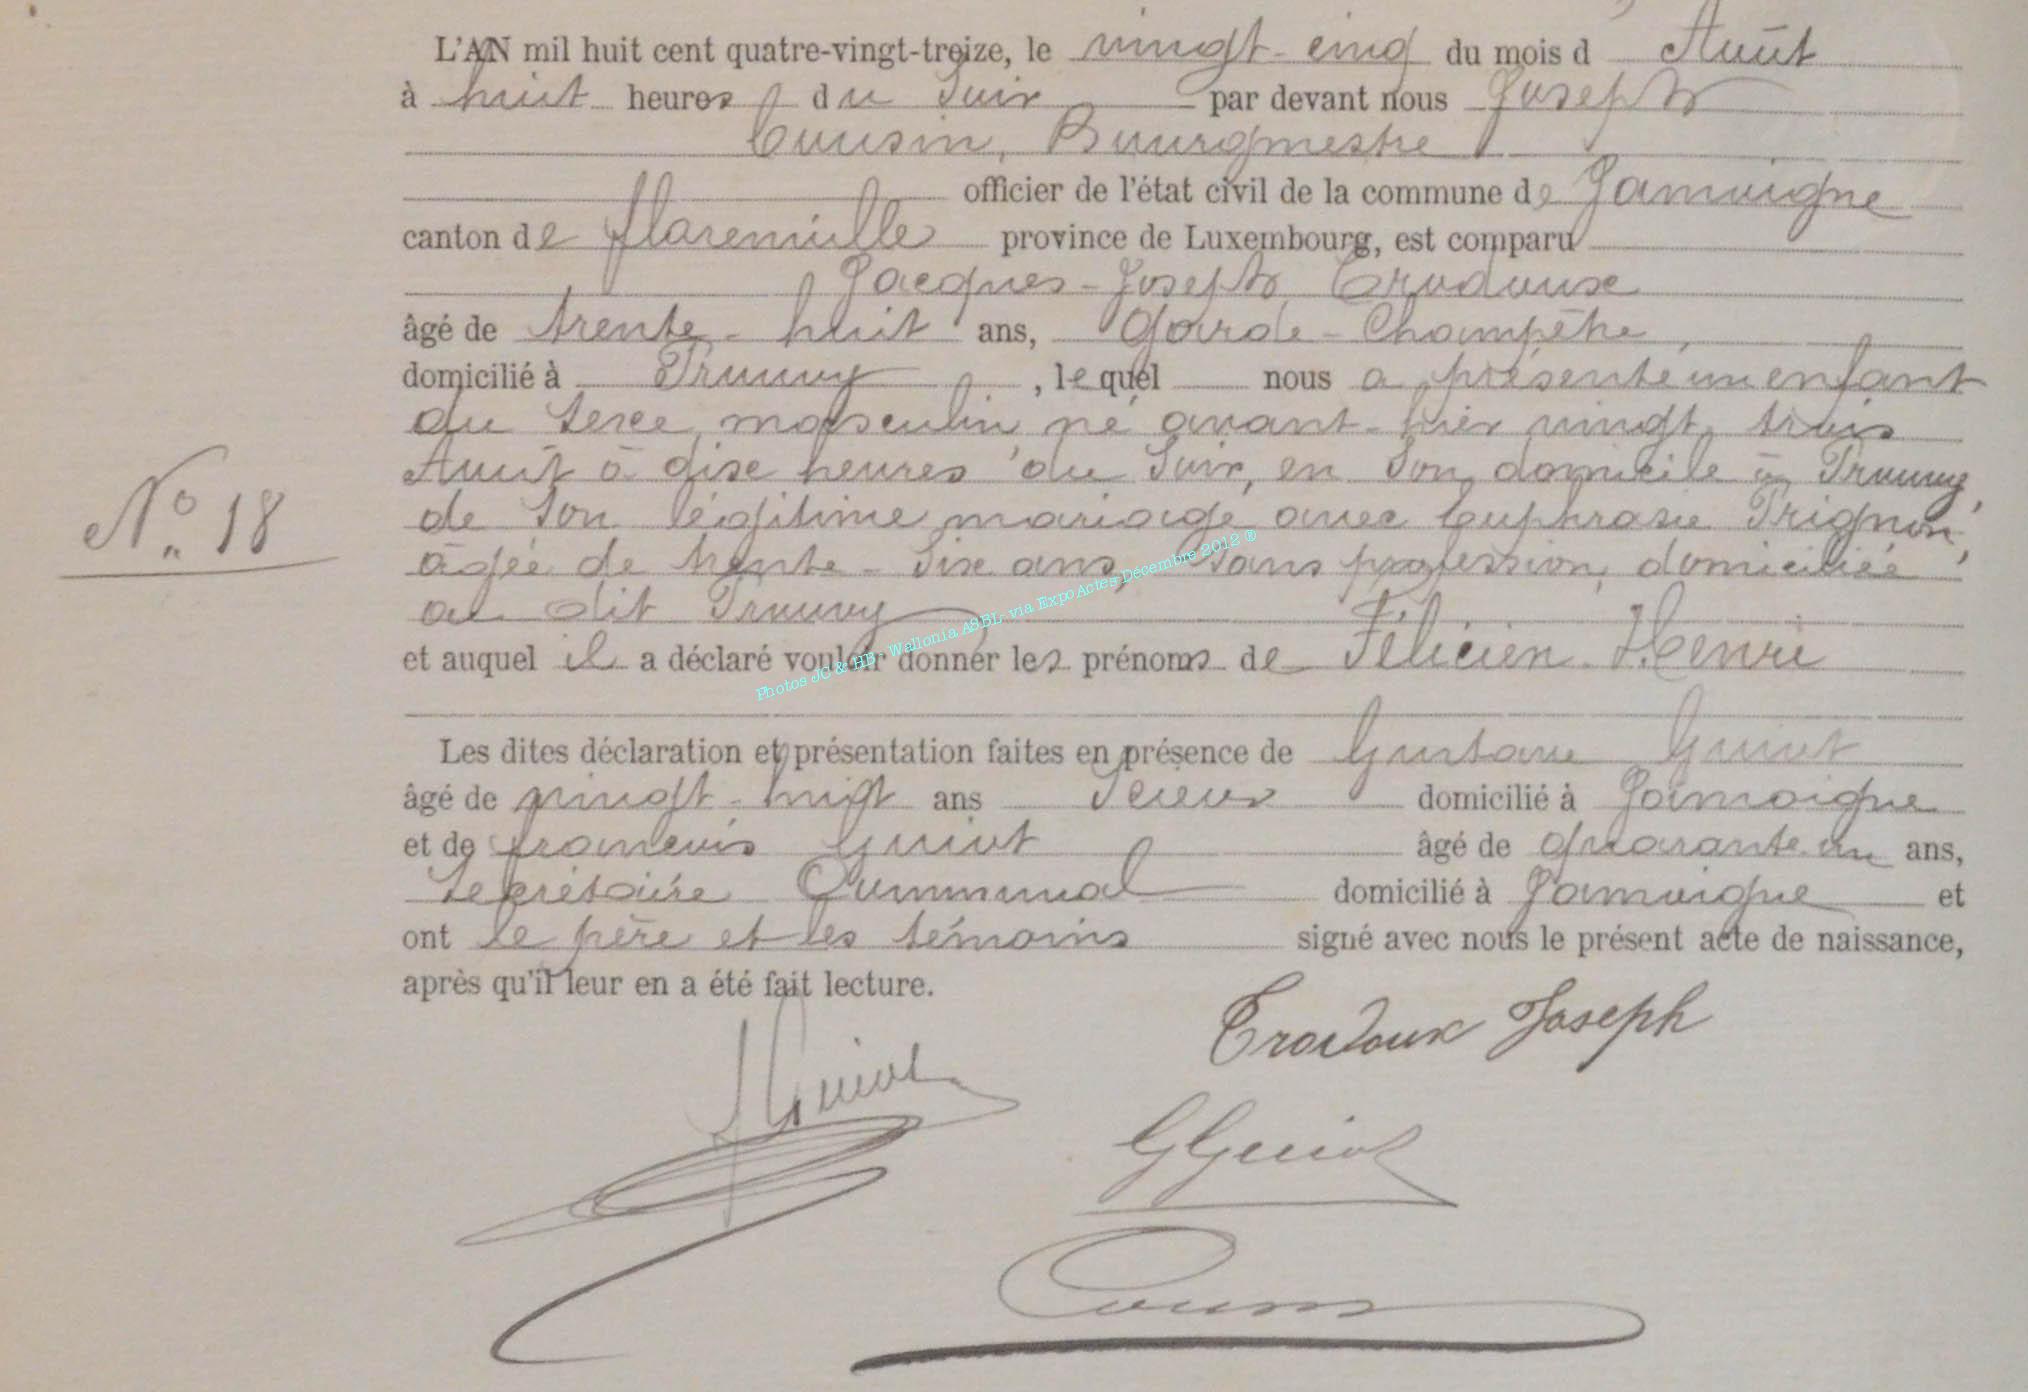 L'AN mil huit cent quatre-vingt-treize, le vingt-cinq du mois d Août
à huit heures du soir par devant nous Joseph
Cousin, Bourgmestre
officier de l'état civil de la commune de Jamoigne
canton de florenville province de Luxembourg, est comparu
Jacques-Joseph Trodoux
âgé de trente-huit ans, Garde-Champêtre,
domicilié à Prouvy, lequel nous a présenté un enfant
du sexe masculin né avant-hier vingt trois
Août à dix heures du soir, en son domicile à Prouvy,
de son légitime mariage avec Euphrasie Prignon,
N° 18
âgée de trente-six ans, sans profession, domiciliée
au dit Prouvy
et auquel il a déclaré vouloir donner les prénoms de Félicien Henri
Photos JC & HB - Wallonia ASBL via ExpoActes Décembre 2012 ®
Les dites déclaration et présentation faites en présence de Gustave Guiot
âgé de vingt-huit ans Scieur domicilié à Jamoigne
et de françois Guiot âgé de quarante-un ans,
secrétaire Communal domicilié à Jamoigne et
ont le père et les témoins signé avec nous le présent acte de naissance,
après qu'il leur en a été fait lecture.
Trodoux Joseph
f Guiot
G Guiot
Cousin